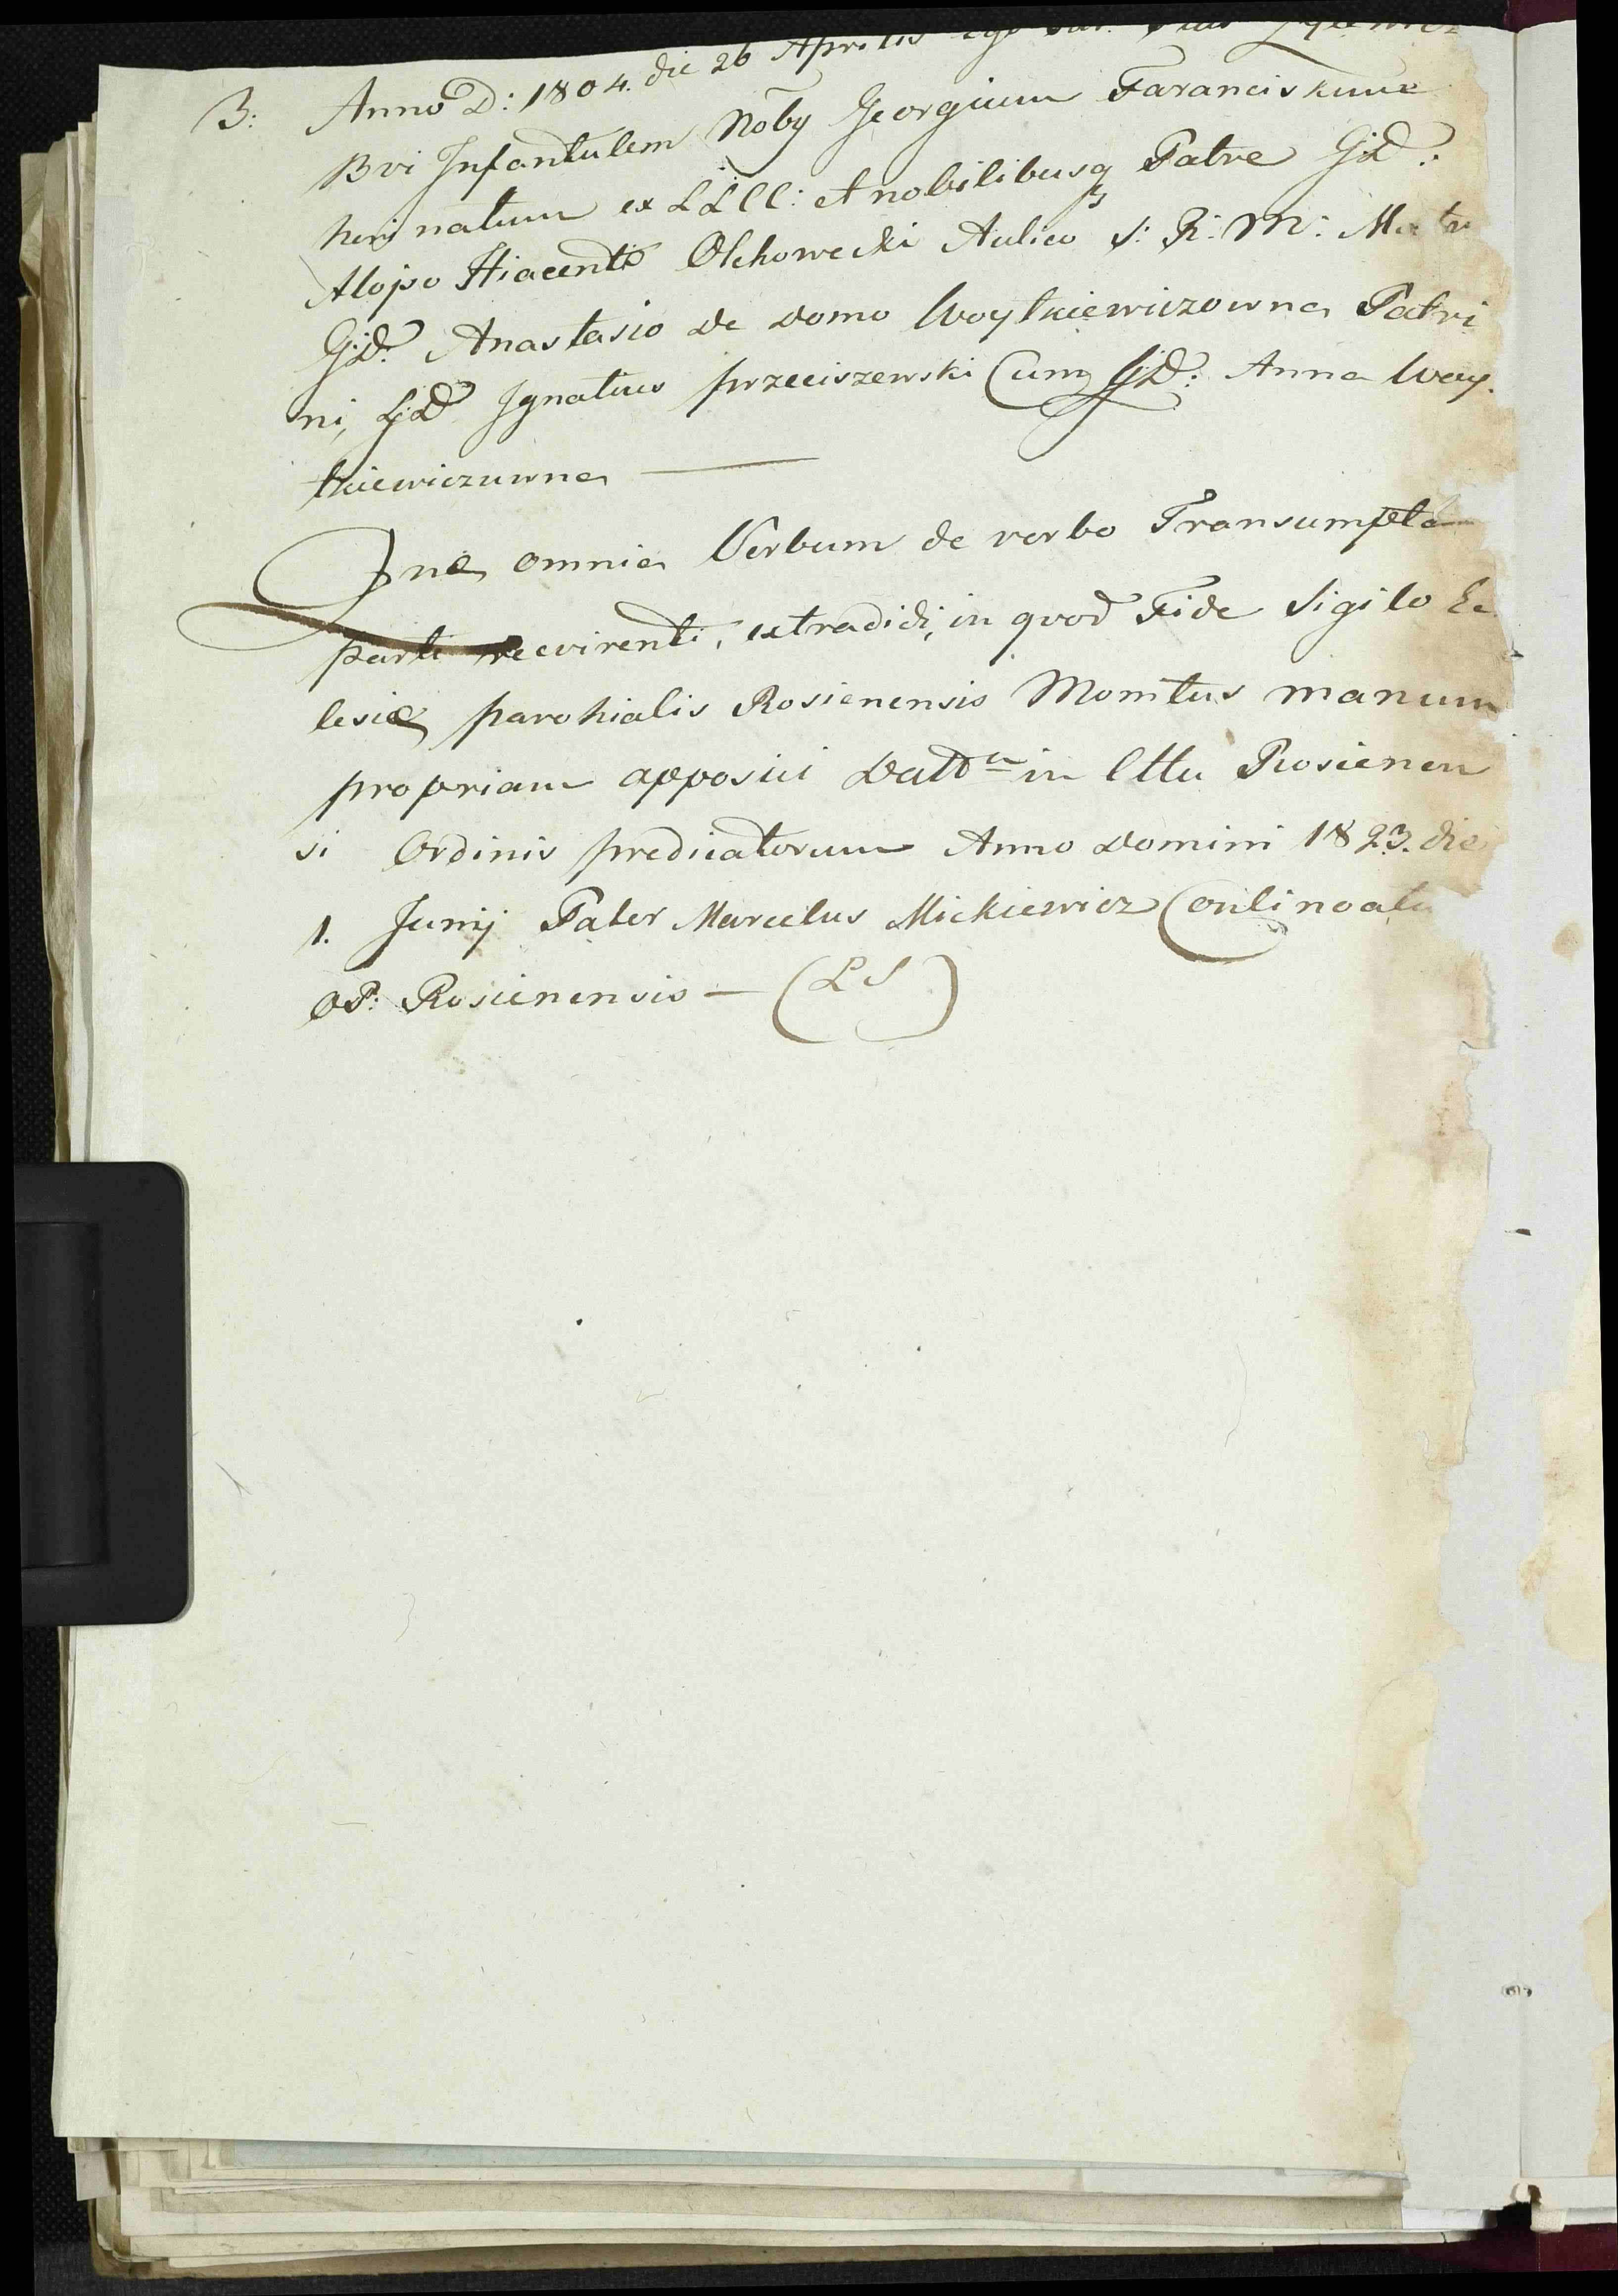 3: Anno D: 1804. die 26 Aprilis ego
Bvi Infantulem Noby Georgium Faranciskum
heri natum ex LLCC: et nobilibusq Patre G:D:
Alojso Hiacento Olchowecki Aulico S: R: M: Matr
G:D: Anastasio de domo Woytkiewiczowna Patri
ni, G:D Ignatius przeciszewski Cum G:D: Anna Woy.
tkiewiczuwna —
Quæ omnia Verbum de verbo Transumpta
parti reevirenti, extradidi, in qvod Fide Sigilo Ec
lesiæ parohialis Rosienensis Monitus manum
propriam apposui Dattm in Cttu Rosienen
si Ordinis predicatorum Anno Domini 1823. die
1. Junij Pater Marcelus Mickiewicz
OP: Rosienensis — (LS)